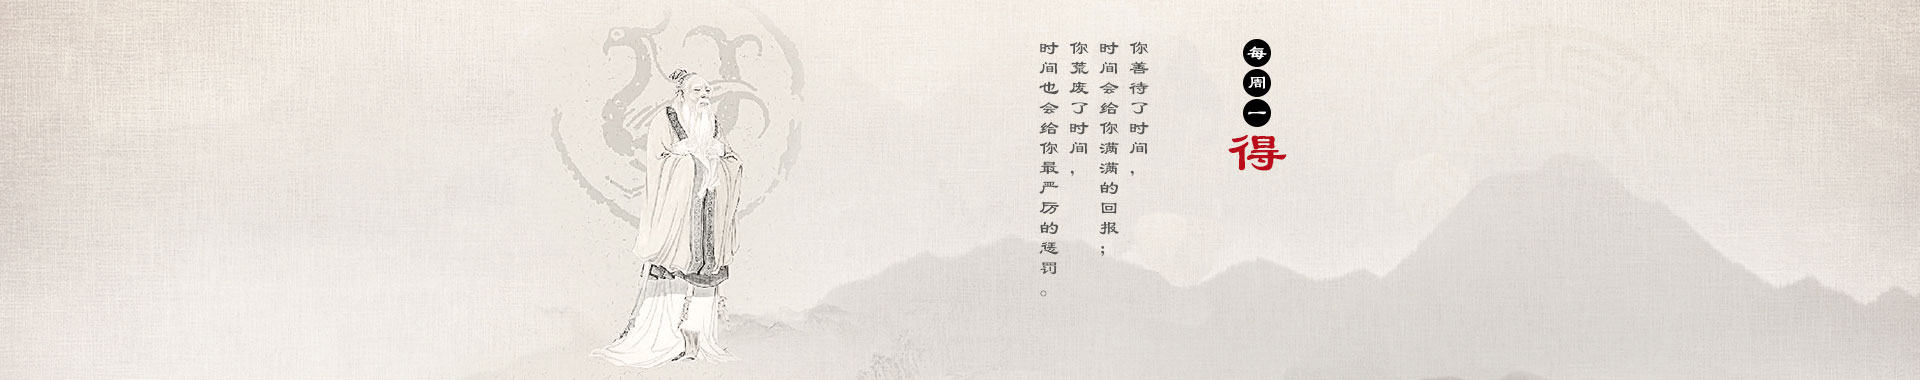 每周一得
你善待了时间，
时间会给你满满的回报；
你荒废了时间，
时间也会给你最严厉的惩罚。